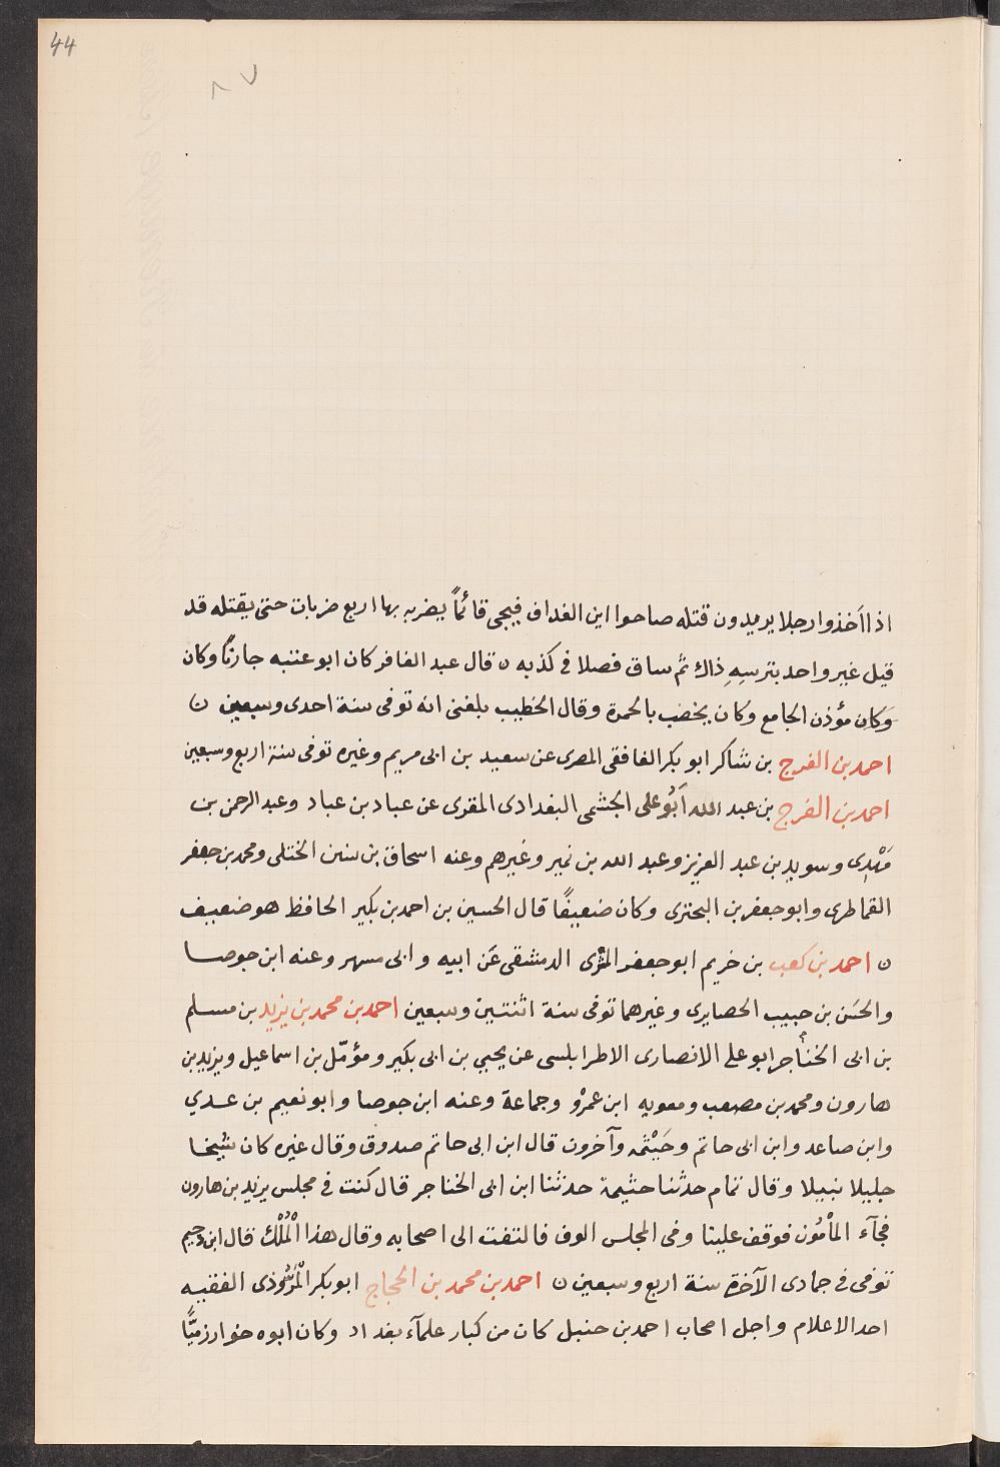 44
٨٧
اذا اَخذوا رجلا يريدون قتله صاحوا اين الغداف فيجى قائماً يضربه بها اربع ضربات حتى يقتله قد
قيل غير واحد بترسِهِ ذاك ثم ساق فصلا فى كذبه ں قال عبد الغافر كان ابو عتبه جارنا وكان
وَكان مؤذن الجامع وكان يخضب بالحمرة وقال الخطيب بلغنى انه توفى سنة احدى وسبعين ں
احمد بن الفرج بن شاكر ابو بكر الغافقى المصرى عن سعيد بن ابى مريم وغيره توفى سنة اربع وسبعين
احمد بن الفرج بن عبد الله اَبُو على الجشمى البغدادى المقرى عن عباد بن عباد وعبد الرحمن بن
مَهْدِى وسويد بن عبد العزيز وعبد الله بن نمير وغيرهم وعنه اسحاق بن سنين الختلى ومحمد بن جعفر
القماطرى وابو جعفر بن البحترى وكان ضعيفًا قال الحسين بن احمد بن بكير الحافظ هو ضعيف
ں احمد بن كعب بن خريم ابو جعفر المُرّى الدمشقى عَن ابيه وابى مسهر وعنه ابن جوصا
والحسَن بن حبيب الحصايرى وغيرهما توفى سنة اثنتين وسبعين احمد بن محمد بن يزيد بن مسلم
بن ابى الخناجر ابو على الانصارى الاطرابلسى عن يحيى بن ابى بكير ومؤمّل بن اسماعيل ويزيد بن
هارون ومحمد بن مصعب ومعويه ابن عمرْو وجماعة وعنه ابن جوصا وابو نعيم بن عدي
وابن صاعد وابن ابى حاتم وخَيْثَمه وآخرون قال ابن ابى حاتم صدوق وقال غيره كان شيخا
جليلا نبيلا وقال تمام حدثنا خثيمة حدثنا ابن ابى الخناجر قال كنت فى مجلس يزيد بن هارون
فجآء المأمُون فوقف علينا وفى المجلس الوف فالتفت الى اصحابه وقال هذا الْمُلْك قال ابن دحيم
توفى فى جمادى الآخرة سنة اربع وسبعين ں احمد بن محمد بن الحجاج ابو بكر المَرُّوذى الفقيه
احد الاعلام واجل اصحاب احمد بن حنبل كان من كبار علمآء بغداد وكان ابوه خوارزميًّا